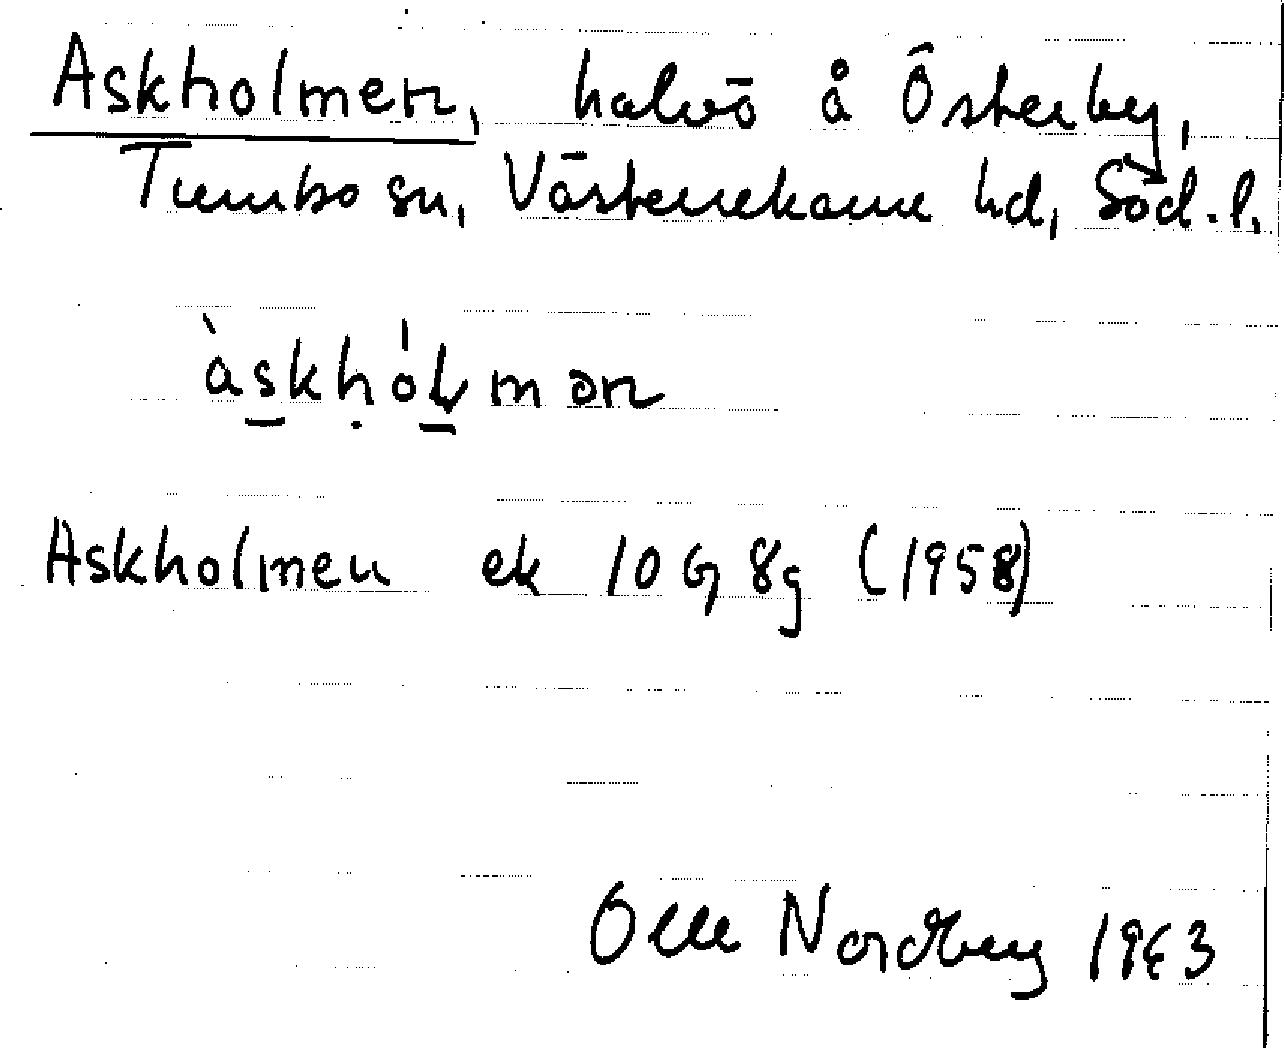 Askholmen, halvö å Österby,
Tumbo sn, Västerrekarne hd, Söd. l.
àskhólmən
Askholmen ek 10 G 8g (1958)
Olle Nordberg 1963